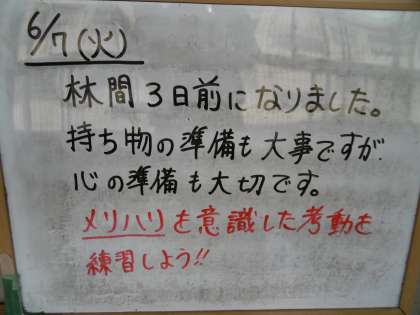 6/7(火)
林間3日前になりました。
持ち物の準備も大事ですが
心の準備も大切です。
メリハリを意識した考動を
練習しよう!!